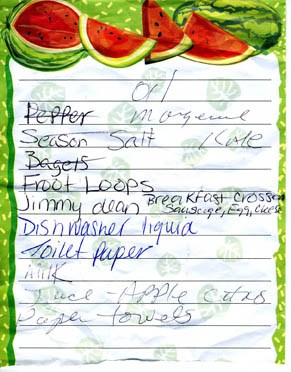 Orl
Pepper
Season Salt Kale
Bagets
Froot Loops
Jimmy dean Breakfast Crossan
Sausage, Egg, Cheese
Dishwasher liquid
Toilet paper
Milk
Juice - Apple
Paper towels